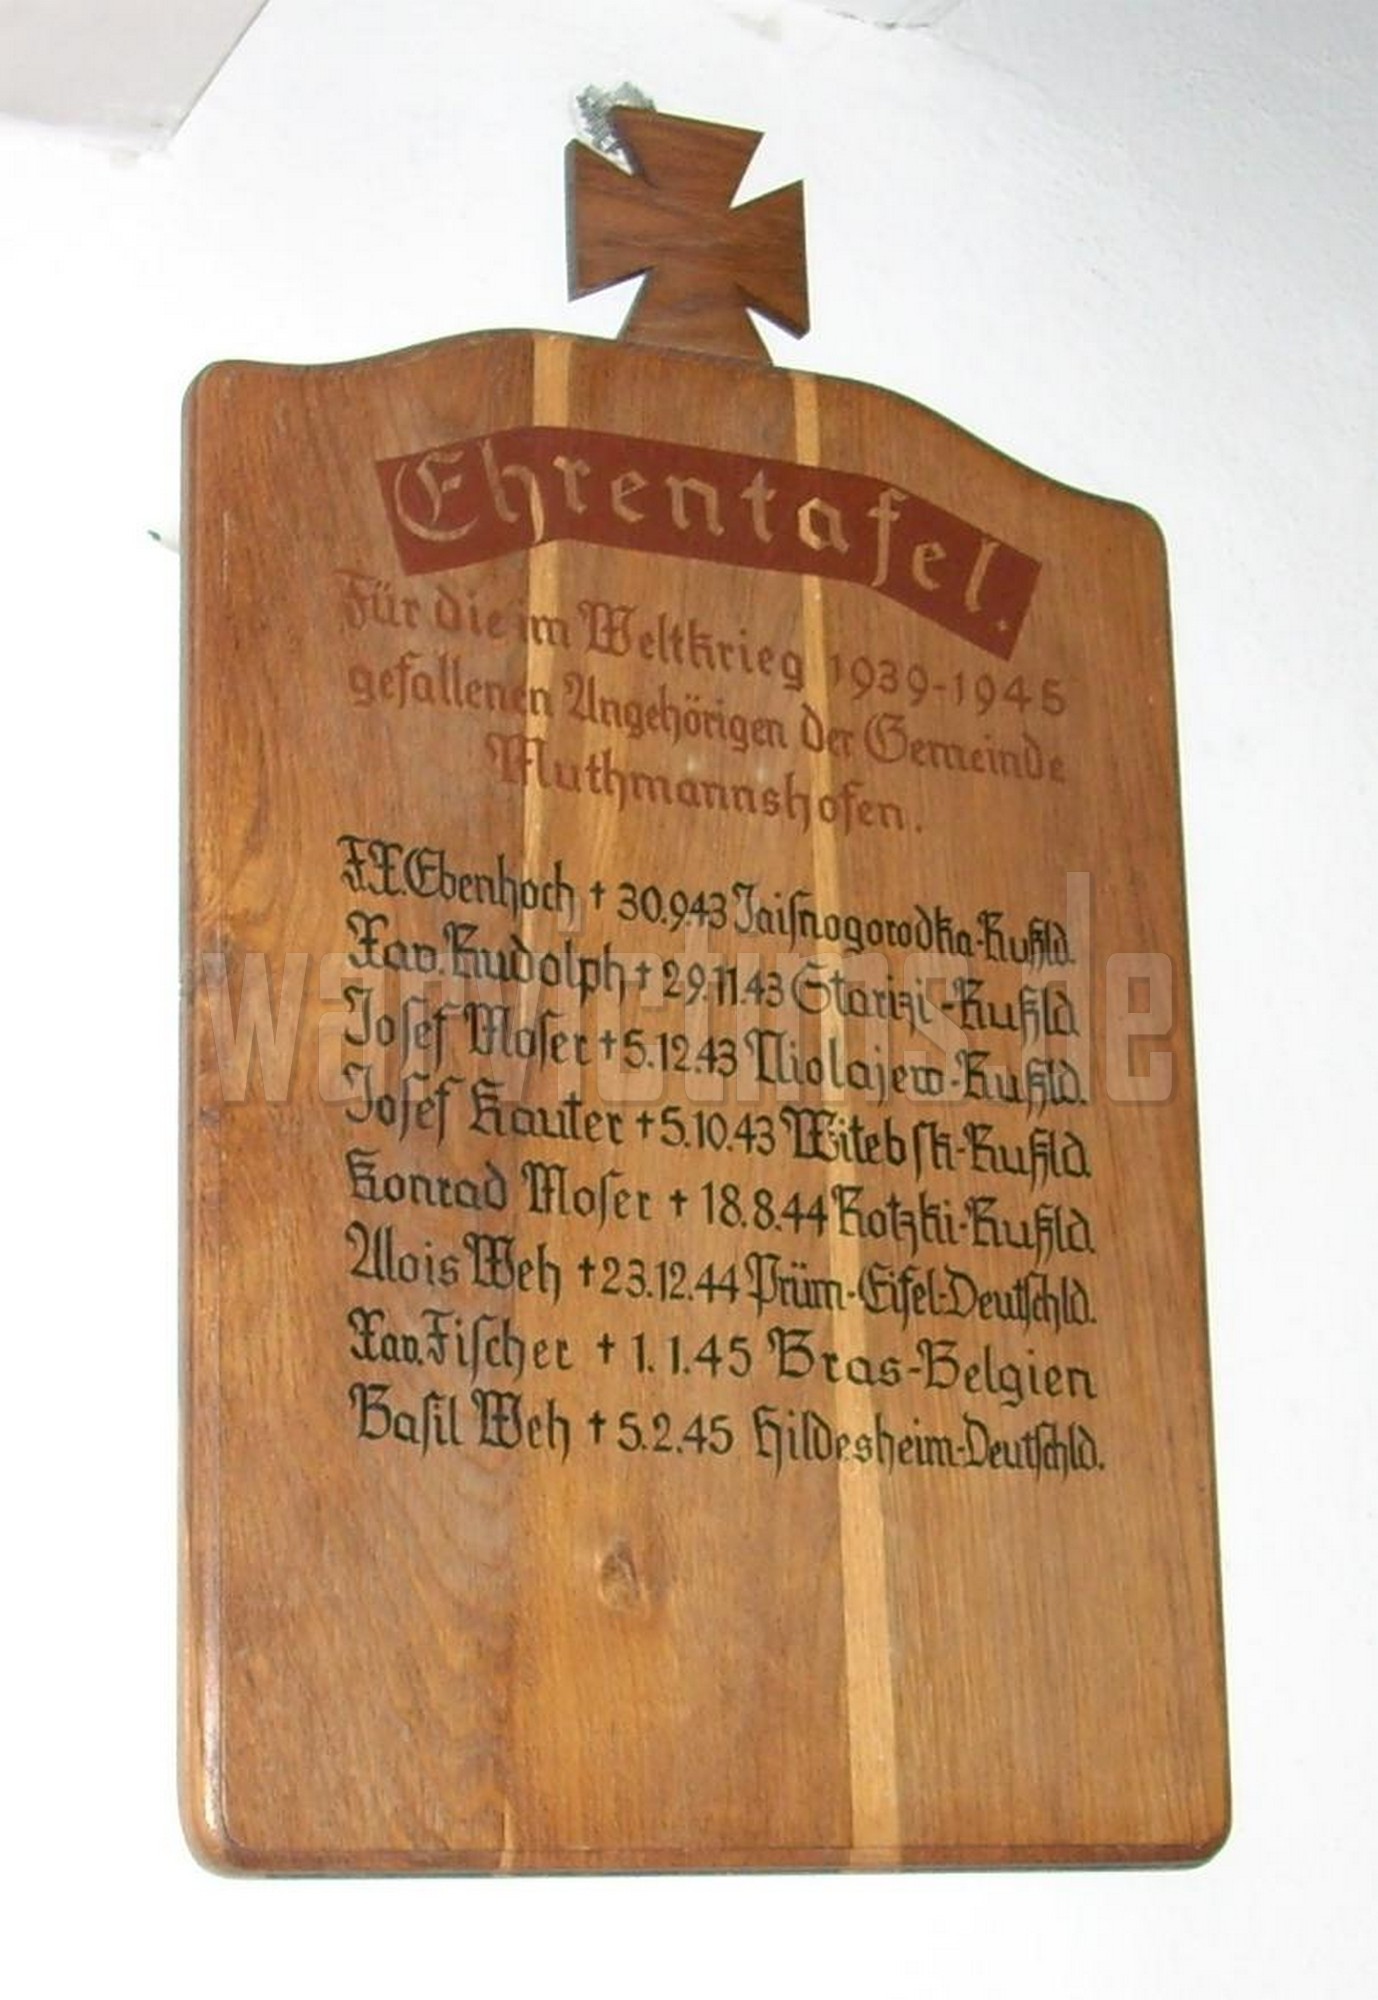 Ehrentafel.
Für die im Weltkrieg 1939-1945
gefallenen Angehörigen der Gemeinde
Muthmannshofen.
F.X. Ebenhoch † 30.9.43 Jaisnogorodka-Rußld.
Xav. Rudolph † 29.11.43 Starizi-Rußld
Josef Moser † 5.12.43 Niolajew-Rußld.
Josef Kauter † 5.10.43 Witebsk-Rußld.
Konrad Moser † 18.8.44 Rotzki-Rußld.
Alois Weh † 23.12.44 Prüm-Eifel-Deutschld.
Xav. Fischer † 1.1.45 Bras-Belgien
Basil Weh † 5.2.45 Hildesheim-Deutschld.
warvictims.de